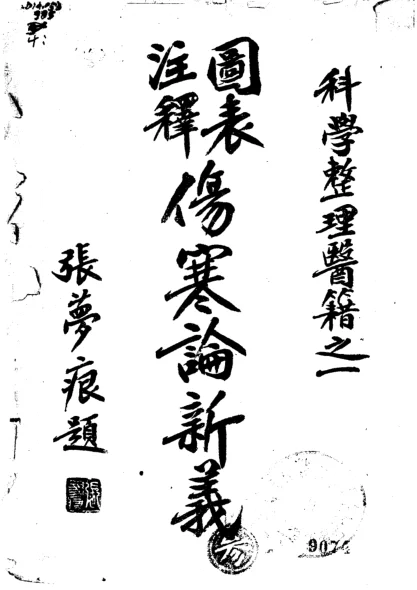 科學整理醫籍之一
圖表
注釋
傷寒論新義
張夢痕題